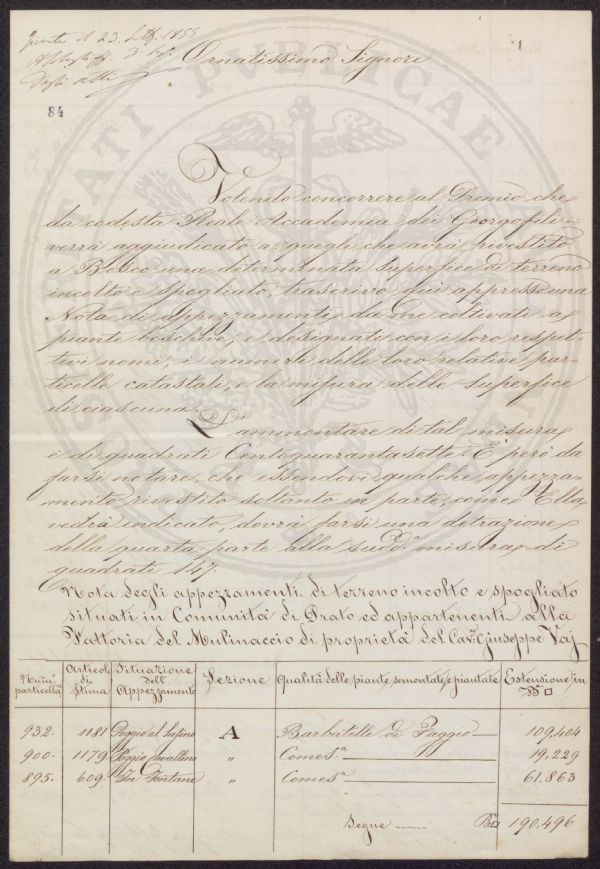 1
Ornatissimo Signore
84
Volendo concorrere al Premio che
da codesta Reale Accademia dei Georgofili
verrà aggiudicato a quegli che avrà rivestito
a Bosco una determinata superfice di terreno
incolto e spogliato, trascrivo qui appresso una
Nota di appezzamenti da me coltivati a
piante boschive, e designati con i loro respet-
tivi nomi, i numeri delle loro relative par-
ticelle catastali, e la misura delle superfice
di ciascuna.
L'ammontare di tal misura
è di quadrati Centoquarantasette. È però da
farsi notare, che essendovi qualche appezza-
mento rivestito soltanto in parte, come Ella
vedrà indicato, dovrà farsi una detrazione
della quarta parte alla sudda. misura di
quadrati 147.
Nota degli appezzamenti di terreno incolto e spogliato
situati in Comunità di Prato ed appartenenti alla
Fattoria del Mulinaccio di proprietà del Cav. Giuseppe Vaj
Num. particella Articolo di Stima Situazione dell'Appezzamento Sezione Qualità delle piante sementate, e piantate Estensione in B□
932. 1181 Poggio al A Barbatelle di Faggio 109,404
900. 1179 Poggio Cavallino " Comes.a 19,229
895. 609. Le Fontane " Comes.a 61,863
Segue B□ 190,496